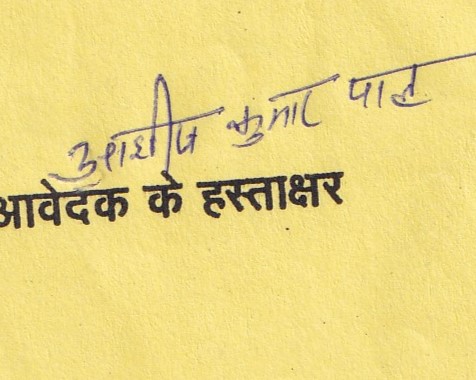 कुमार पाल
आवेदक के हस्ताक्षर